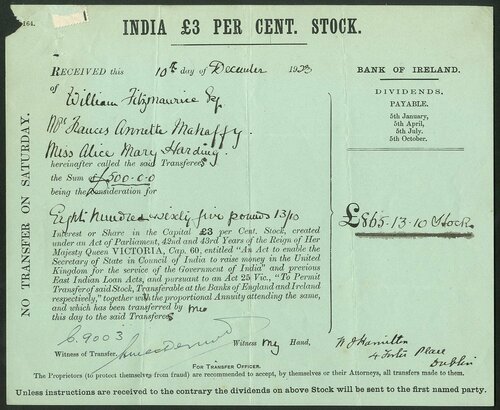 164.
INDIA £3 PER CENT. STOCK.
RECEIVED this 10th day of December 1923
of William Fitzmaurice Esq.
Mrs Frances Annette Mahaffy.
Miss Alice Mary Harding.
hereinafter called the said Transferees
the Sum £500-0-0
being the Consideration for
Eight hundred sixty five pounds 13/10
Interest or Share in the Capital £3 per Cent. Stock, created
under an Act of Parliament, 42nd and 43rd Years of the Reign of Her
Majesty Queen VICTORIA, Cap. 60, entitled "An Act to enable the
Secretary of State in Council of India to raise money in the United
Kingdom for the service of the Government of India" and previous
East Indian Loan Acts, and pursuant to an Act 25 Vic., "To Permit
Transfer of said Stock, Transferable at the Banks of England and Ireland
respectively," together with the proportional Annuity attending the same,
and which has been transferred by me
this day to the said Transferees
C. 9003
Witness my Hand,
Witness of Transfer,
W J Hamilton
4 Foster Place
Dublin
FOR TRANSFER OFFICER.
The Proprietors (to protect themselves from fraud) are recommended to accept, by themselves or their Attorneys, all transfers made to them.
Unless instructions are received to the contrary the dividends on above Stock will be sent to the first named party.
NO TRANSFER ON SATURDAY.
BANK OF IRELAND.
DIVIDENDS.
PAYABLE.
5th January,
5th April,
5th July.
5th October.
£865-13-10 Stock